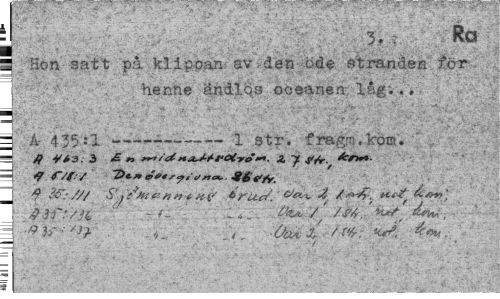 3. Ra
Hon satt på klippan av den öde stranden för
henne ändlös oceanen låg...
A 435:1 ----------- 1 str. fragm.kom.
A 463:3 En midnattsdröm. 27 str, kom.
A 518:1 Den övergivna. 86 str.
A 35:111 Sjömannens brud. Var 2, 1 str, not, kom.
A 35:136 -"- -"- Var 1, 1 str. not, kom.
A 35:137 -"- -"- Var 2, 1 str. not. kom.